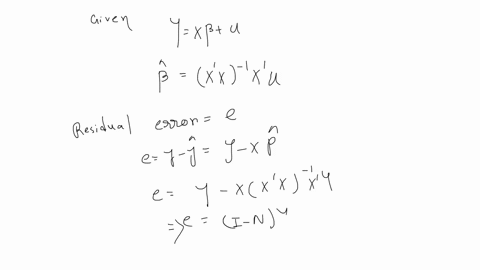 Given y = xβ + u
β̂ = (x'x)⁻¹x'u
Residual error = e
e = y - ŷ = y - x β̂
e = y - x(x'x)⁻¹x'y
⇒ e = (I - N)y